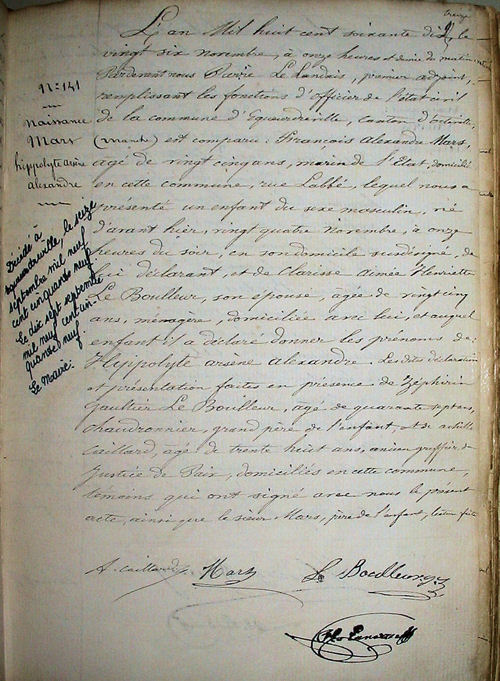 N.° 141
Naissance
Mars
hippolyte arsène
alexandre
Décédé à
equeurdreville, le seize
septembre mil neuf
cent cinquante neuf
Le dix sept septembre
mil neuf cent cin
quante neuf.
Le Maire.
L'an Mil huit cent soixante dix, le
vingt six novembre, à onze heures et demie du matin
Pardevant nous Pierre Le Landais, premier adjoint,
remplissant les fonctions d'officier de l'état civil
de la commune d'Equeurdreville, canton d'octeville,
(manche) est comparu: François Alexandre Mars,
agé de vingt cinq ans, marin de l'Etat, domicilié
en cette commune, rue Labbé, lequel nous a
présenté un enfant du sexe masculin, né
d'avant hier, vingt quatre novembre, à onze
heures du soir, en son domicile susdésigné, de
lui déclarant, et de Clarisse Aimée Henriette
Le Boulleur, son épouse, agée de vingt cinq
ans, ménagère, domiciliée avec lui, et auquel
enfant il a déclaré donner les prénoms de:
Hippolyte arsène alexandre. Lesdites déclaration
et présentation faites en présence de Zéphirin
Gaultier Le Boulleur, agé de quarante sept ans,
chaudronnier, grand père de l'enfant, et de achille
Caillard, agé de trente huit ans, ancien greffier de
Justice de Paix, domiciliés en cette commune,
témoins qui ont signé avec nous le présent
acte, ainsi que le sieur Mars, père de l'enfant, lecture faite
A. Caillard Mars Le Boulleur